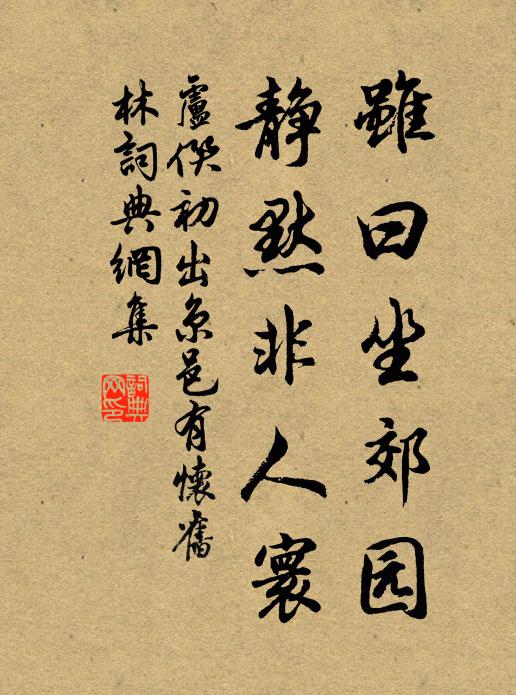 雖曰坐郊园
靜默非人寰
盧僎初出京邑有懷舊
林詞典網集
詞典
网印